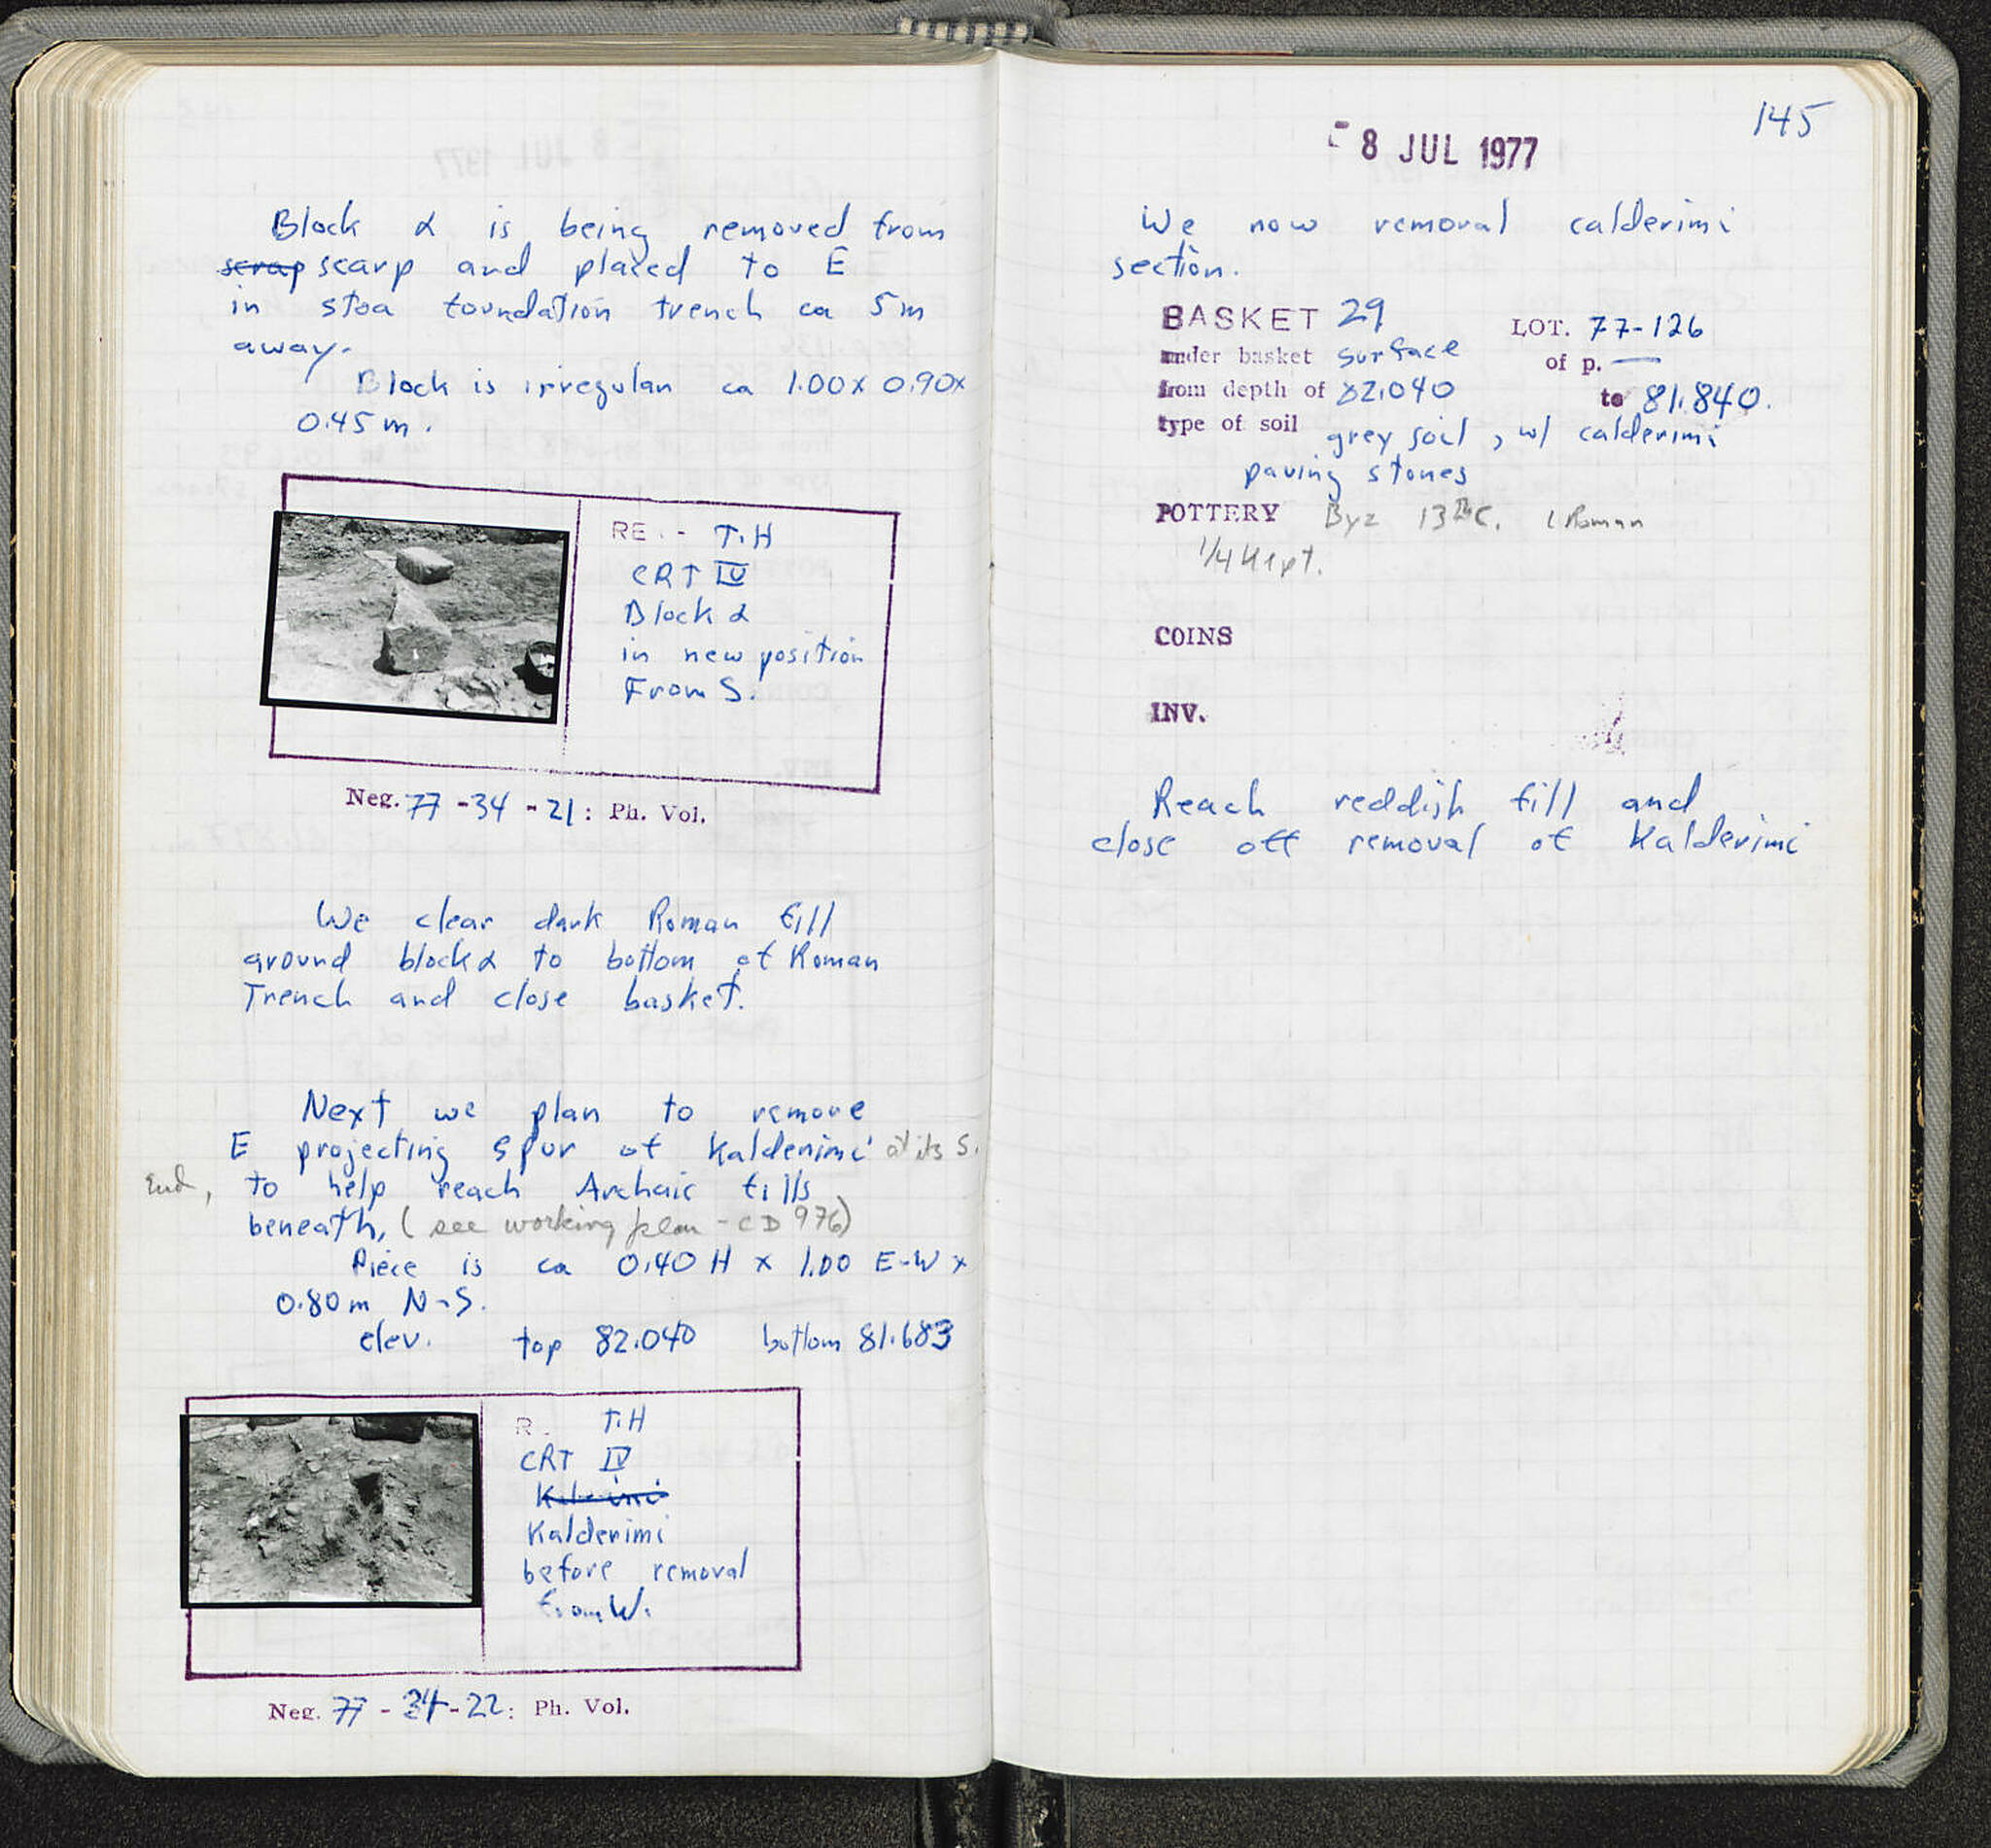 Block α is being removed from
scrap scarp and placed to E
in stoa foundation trench ca 5m
away.
Block is irregular ca 1.00 x 0.90 x
0.45 m.
RE.- T.H
CRT IV
Block α
in new position
From S.
Neg. 77 - 34 - 21 : Ph. Vol.
We clear dark Roman fill
around block α to bottom of Roman
Trench and close basket.
Next we plan to remove
E projecting spur of Kalderimi at its S.
End, to help reach Archaic fills
beneath, (see working plan - CD 976)
Piece is ca 0.40 H x 1.00 E-W x
0.80m N-S.
elev. top 82.040 bottom 81.683
R. T.H
CRT IV
Kalderimi
before removal
from W.
Neg. 77 - 34 - 22 : Ph. Vol.
145
8 JUL 1977
We now removal calderimi
section.
BASKET 29 LOT. 77-126
under basket surface of p. —
from depth of 82.040 to 81.840.
type of soil grey soil, w/ calderimi
paving stones
POTTERY Byz 13th C. 1 Roman
1/4 kept.
COINS
INV.
Reach reddish fill and
close off removal of Kalderimi